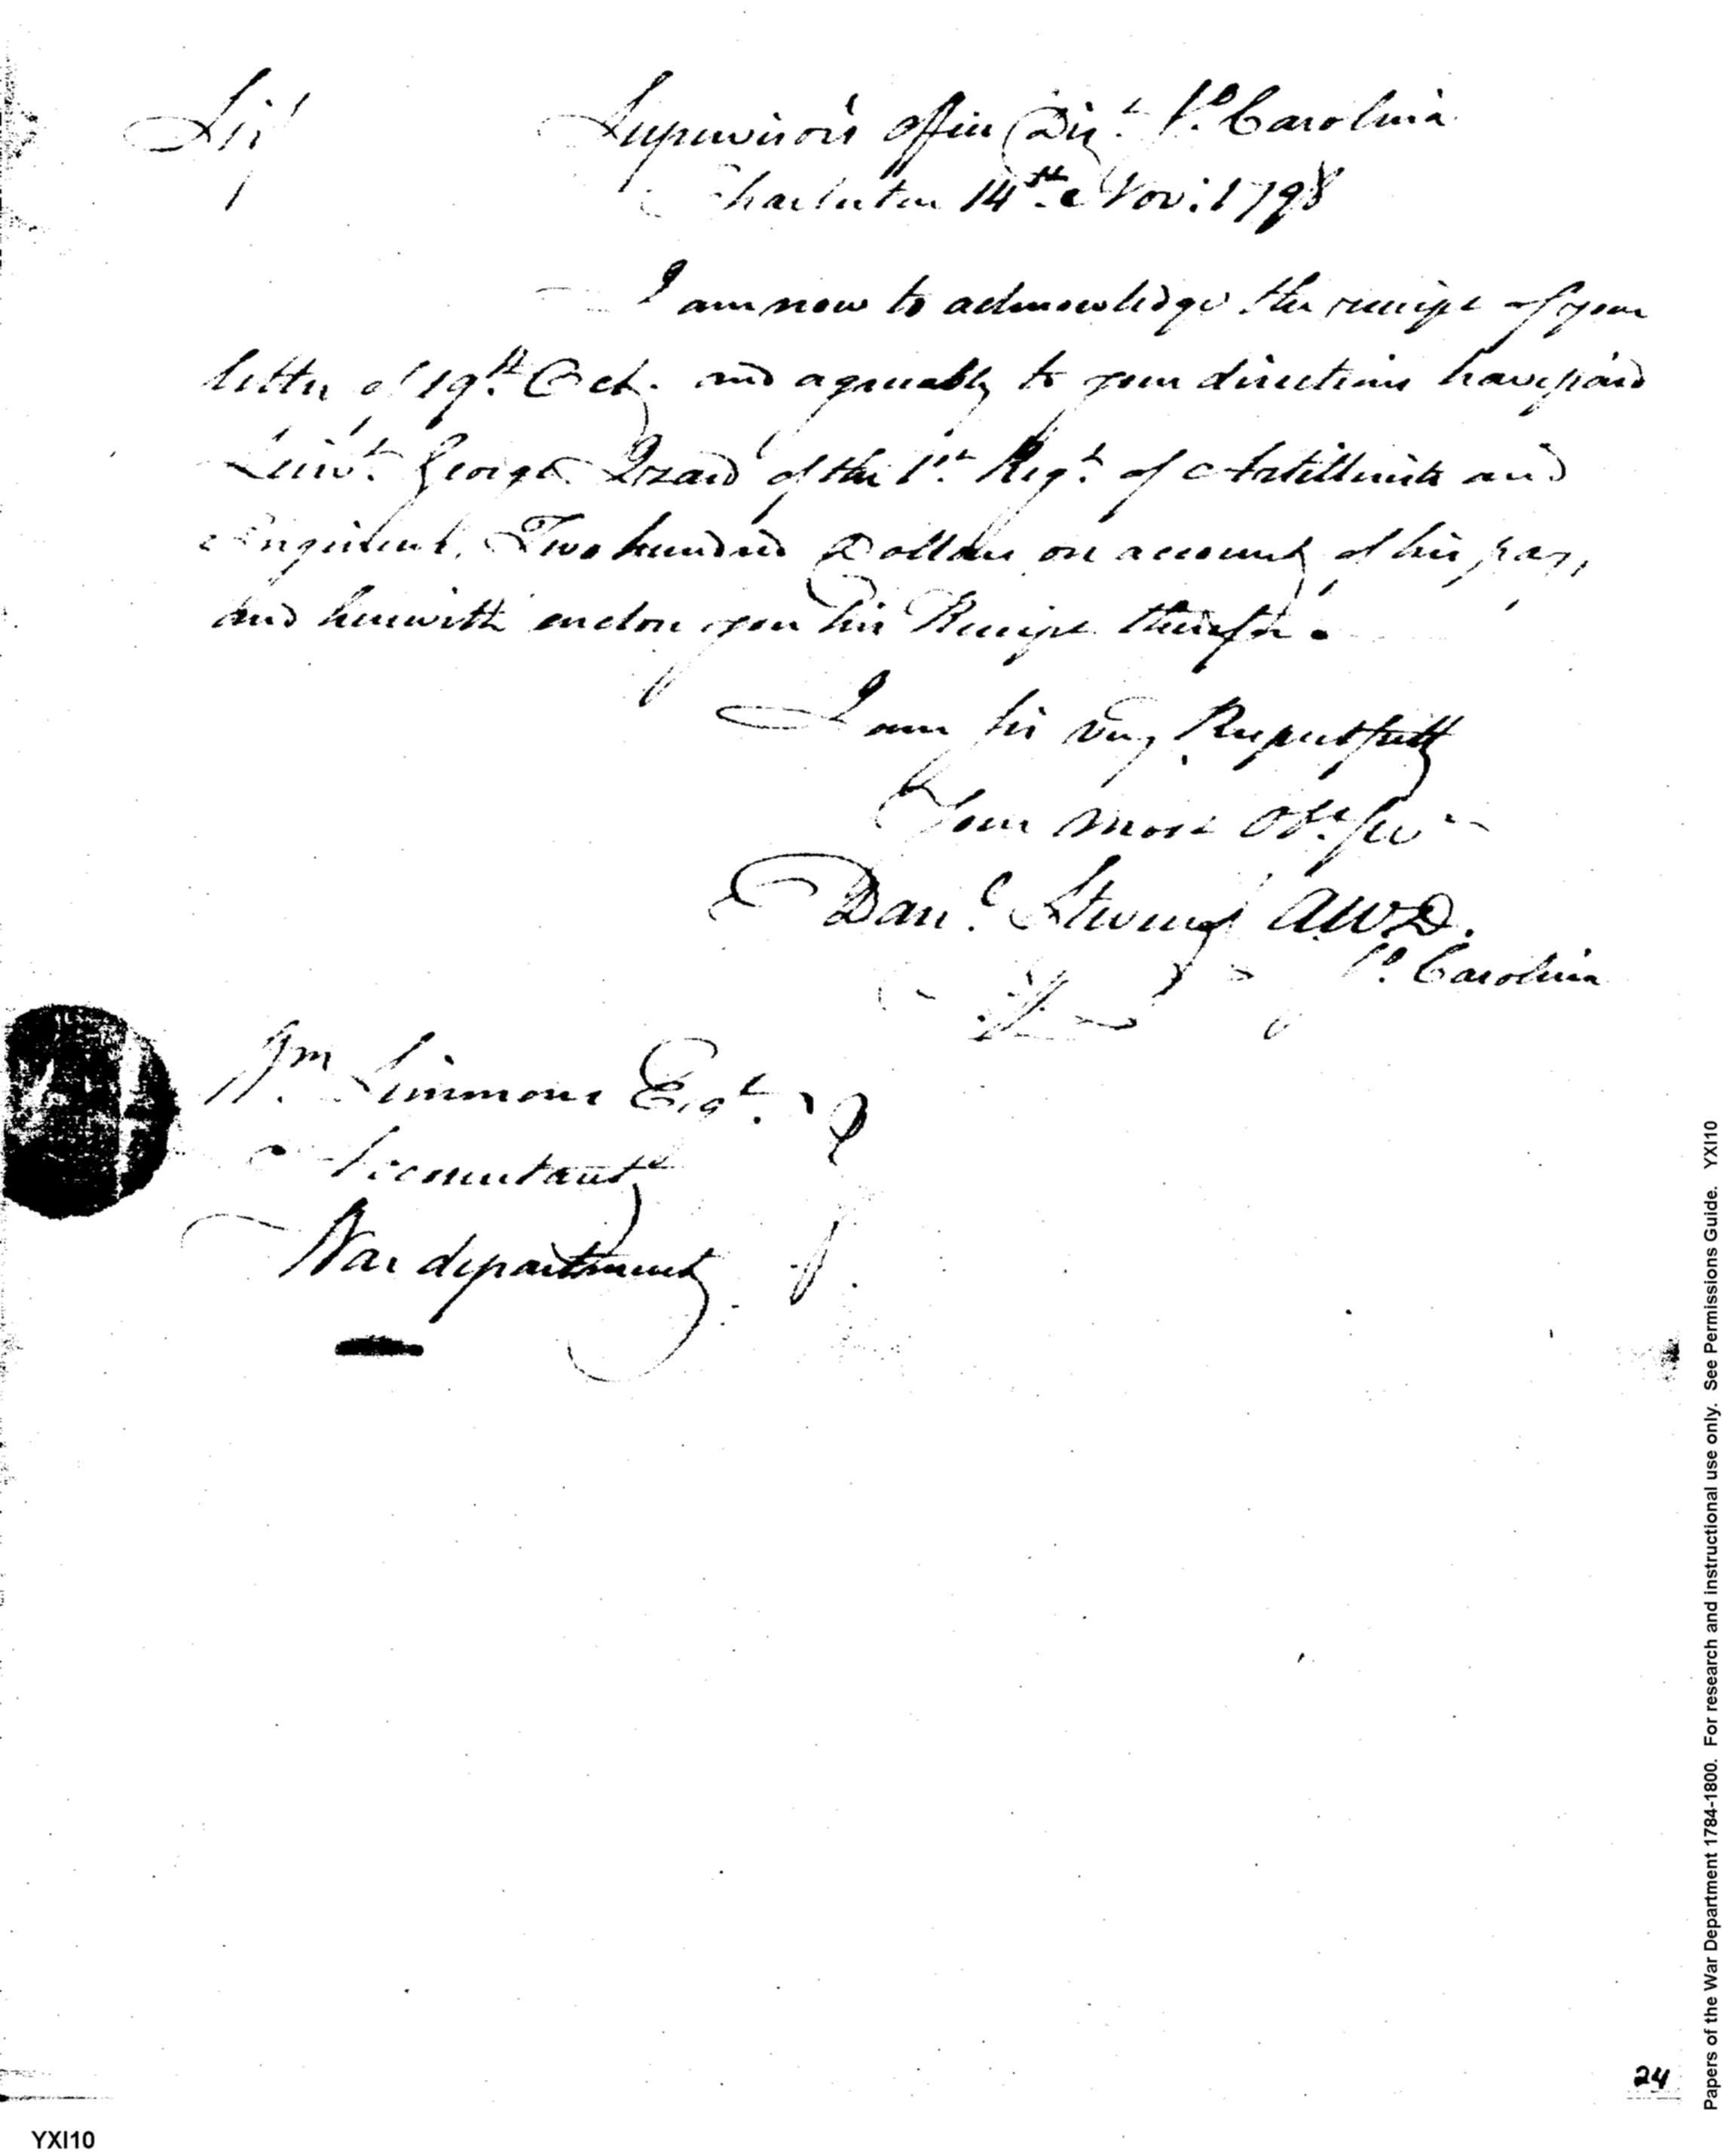 Sir Supervisor's Office Dist. So. Carolina
Charleston 14th. Nov: 1798
I am now to acknowledge the receipt of your
letter of 19th. Oct. and agreeably to your directions have paid
Lieut. George Izard of the 1st. Regt. of Artillerists and
Engineers, Two hundred Dollars on account of his pay,
and herewith enclose you his Receipt therefor.
I am Sir very Respectfully
Your most Obt. Ser
Danl. Stevens AWD.
So. Carolina
Wm. Simmons Esqr.
Accountant
War department
24
YXI10
Papers of the War Department 1784-1800. For research and instructional use only. See Permissions Guide. YXI10